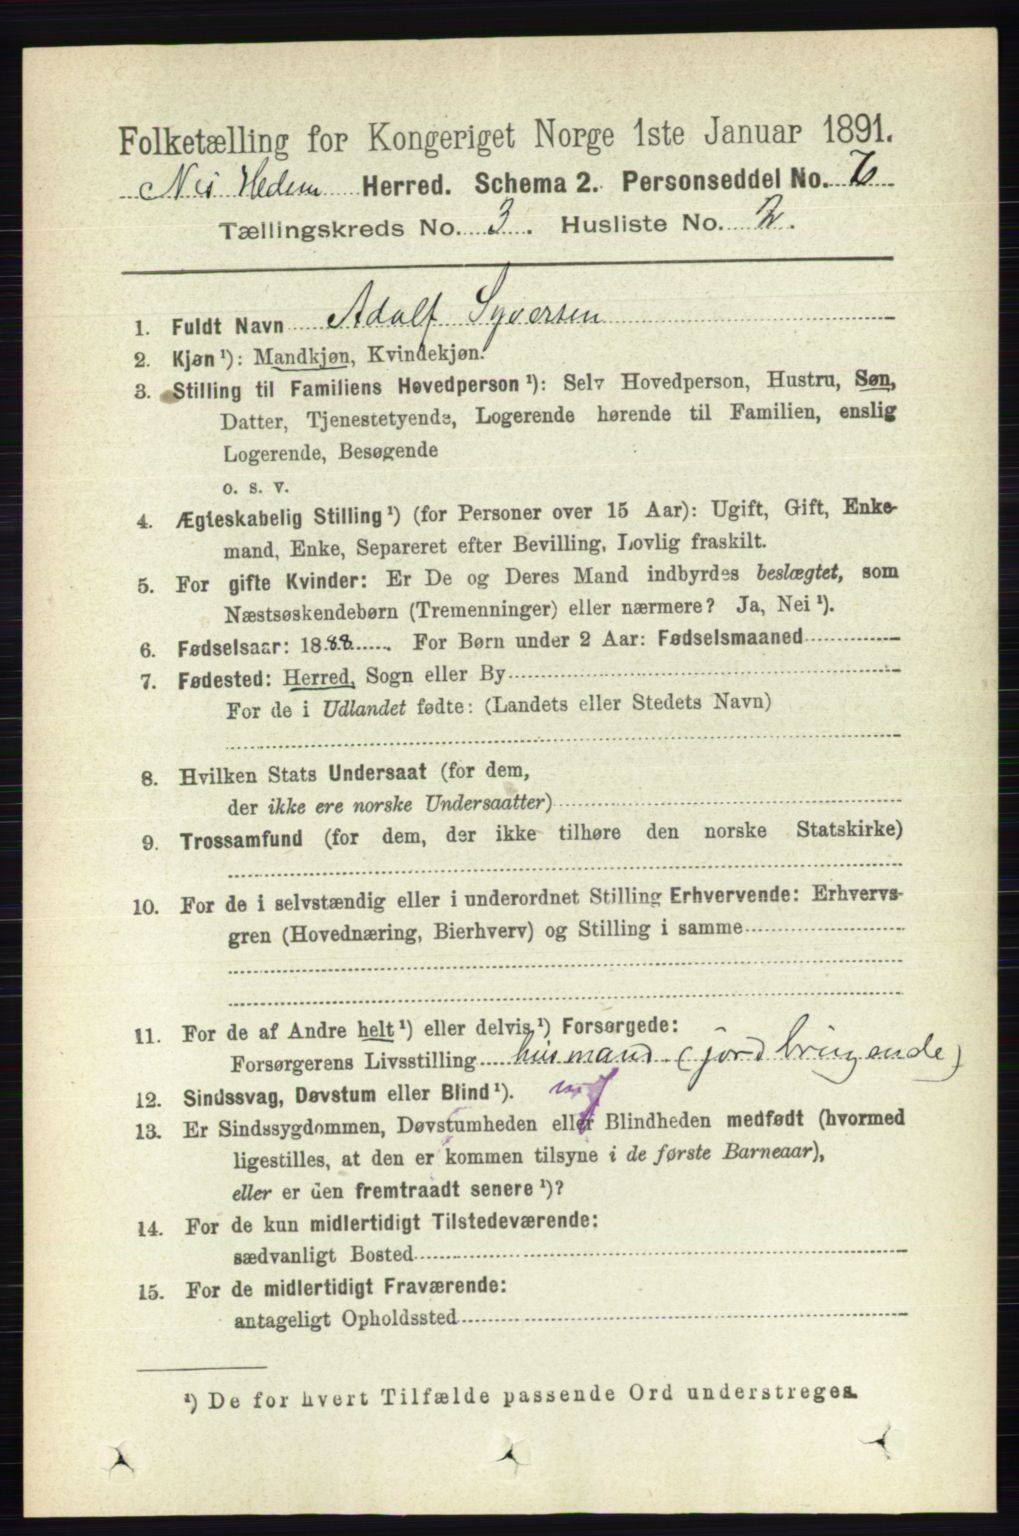 Folketælling for Kongeriget Norge 1ste Januar 1891.
Nes Hedem Herred. Schema 2. Personseddel No.
Tællingskreds No. 3. Husliste No. 2.
1. Fuldt Navn Adolf Syversen
2. Kjøn ¹): Mandkjøn, Kvindekjøn.
3. Stilling til Familiens Hovedperson ¹): Selv Hovedperson, Hustru, Søn,
Datter, Tjenestetyende, Logerende hørende til Familien, enslig
Logerende, Besøgende
o. s. v.
4. Ægteskabelig Stilling ¹) (for Personer over 15 Aar): Ugift, Gift, Enke-
mand, Enke, Separeret efter Bevilling, Lovlig fraskilt.
5. For gifte Kvinder: Er De og Deres Mand indbyrdes beslægtet, som
Næstsøskendebørn (Tremenninger) eller nærmere? Ja, Nei ¹).
6. Fødselsaar: 1888. For Børn under 2 Aar: Fødselsmaaned
7. Fødested: Herred, Sogn eller By
For de i Udlandet fødte: (Landets eller Stedets Navn)
8. Hvilken Stats Undersaat (for dem,
der ikke ere norske Undersaatter)
9. Trossamfund (for dem, der ikke tilhøre den norske Statskirke)
10. For de i selvstændig eller i underordnet Stilling Erhvervende: Erhvervs-
gren (Hovednæring, Bierhverv) og Stilling i samme
11. For de af Andre helt ¹) eller delvis ¹) Forsørgede:
Forsørgerens Livsstilling husmand (jordbrugende)
12. Sindssvag, Døvstum eller Blind ¹).
13. Er Sindssygdommen, Døvstumheden eller Blindheden medfødt (hvormed
ligestilles, at den er kommen tilsyne i de første Barneaar),
eller er den fremtraadt senere ¹)?
14. For de kun midlertidigt Tilstedeværende:
sædvanligt Bosted
15. For de midlertidigt Fraværende:
antageligt Opholdssted
¹) De for hvert Tilfælde passende Ord understreges.